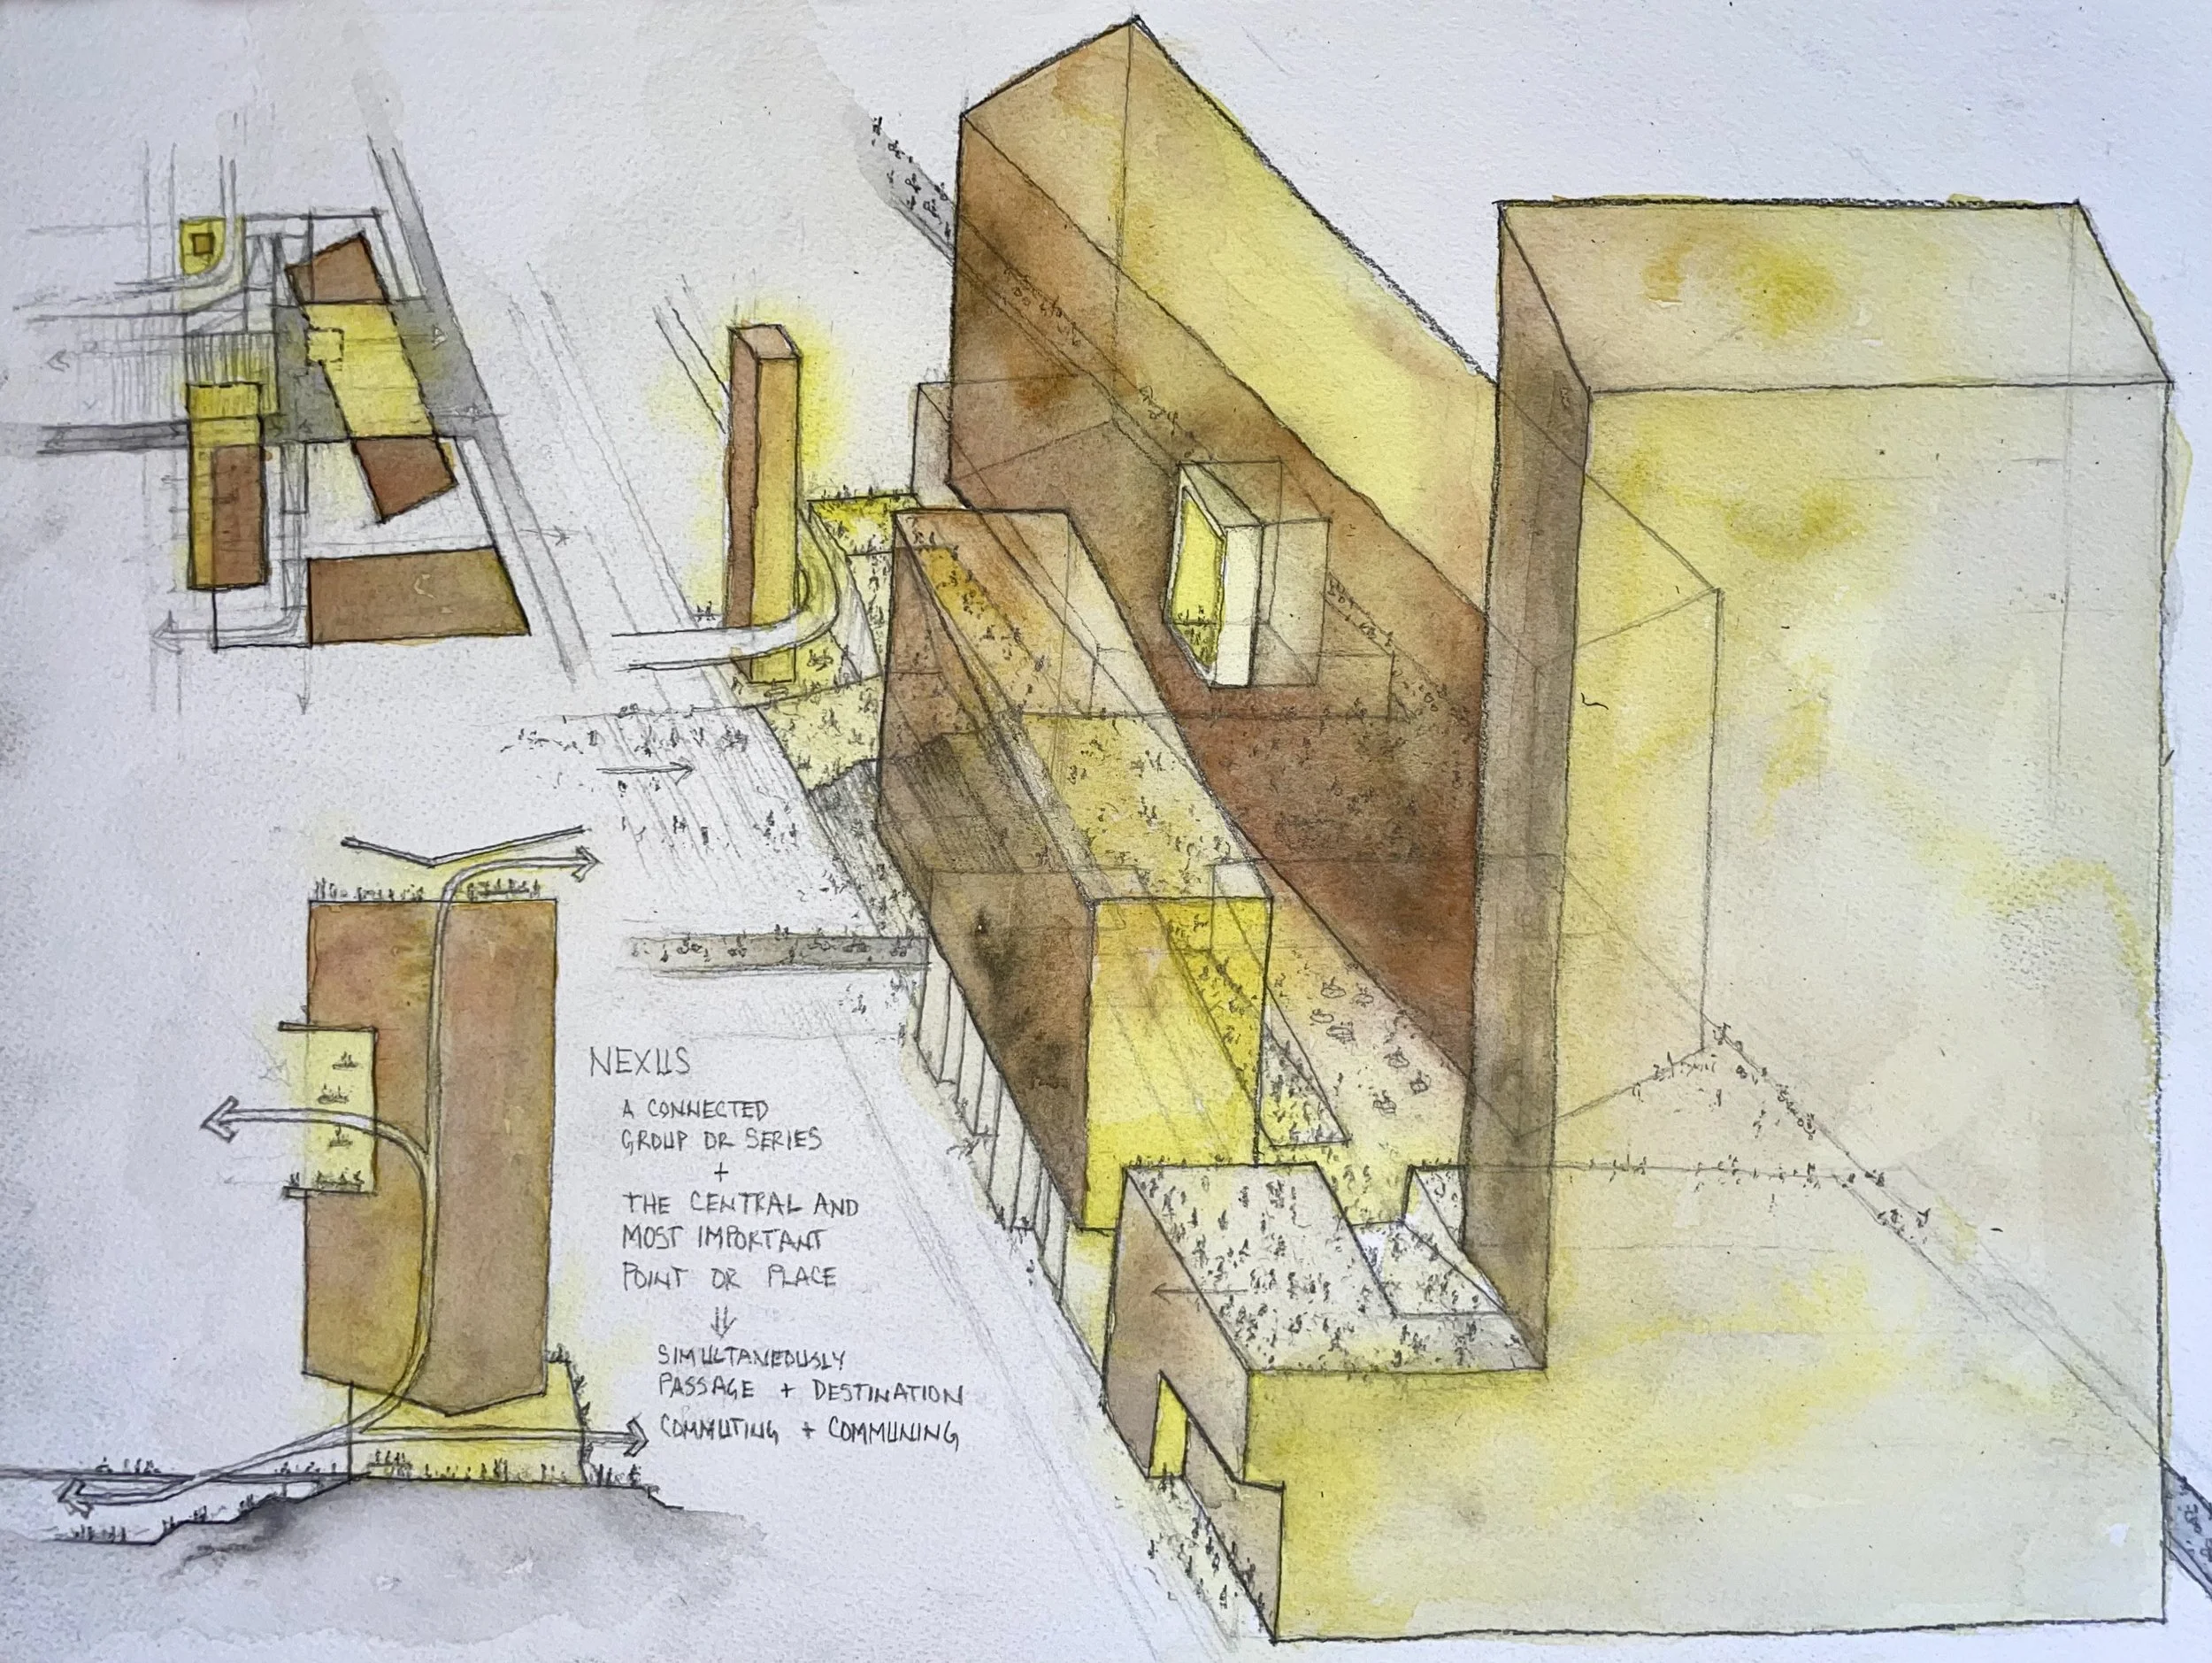 NEXUS
A CONNECTED
GROUP OR SERIES
+
THE CENTRAL AND
MOST IMPORTANT
POINT OR PLACE
⇓
SIMULTANEOUSLY
PASSAGE + DESTINATION
COMMUTING + COMMUNING